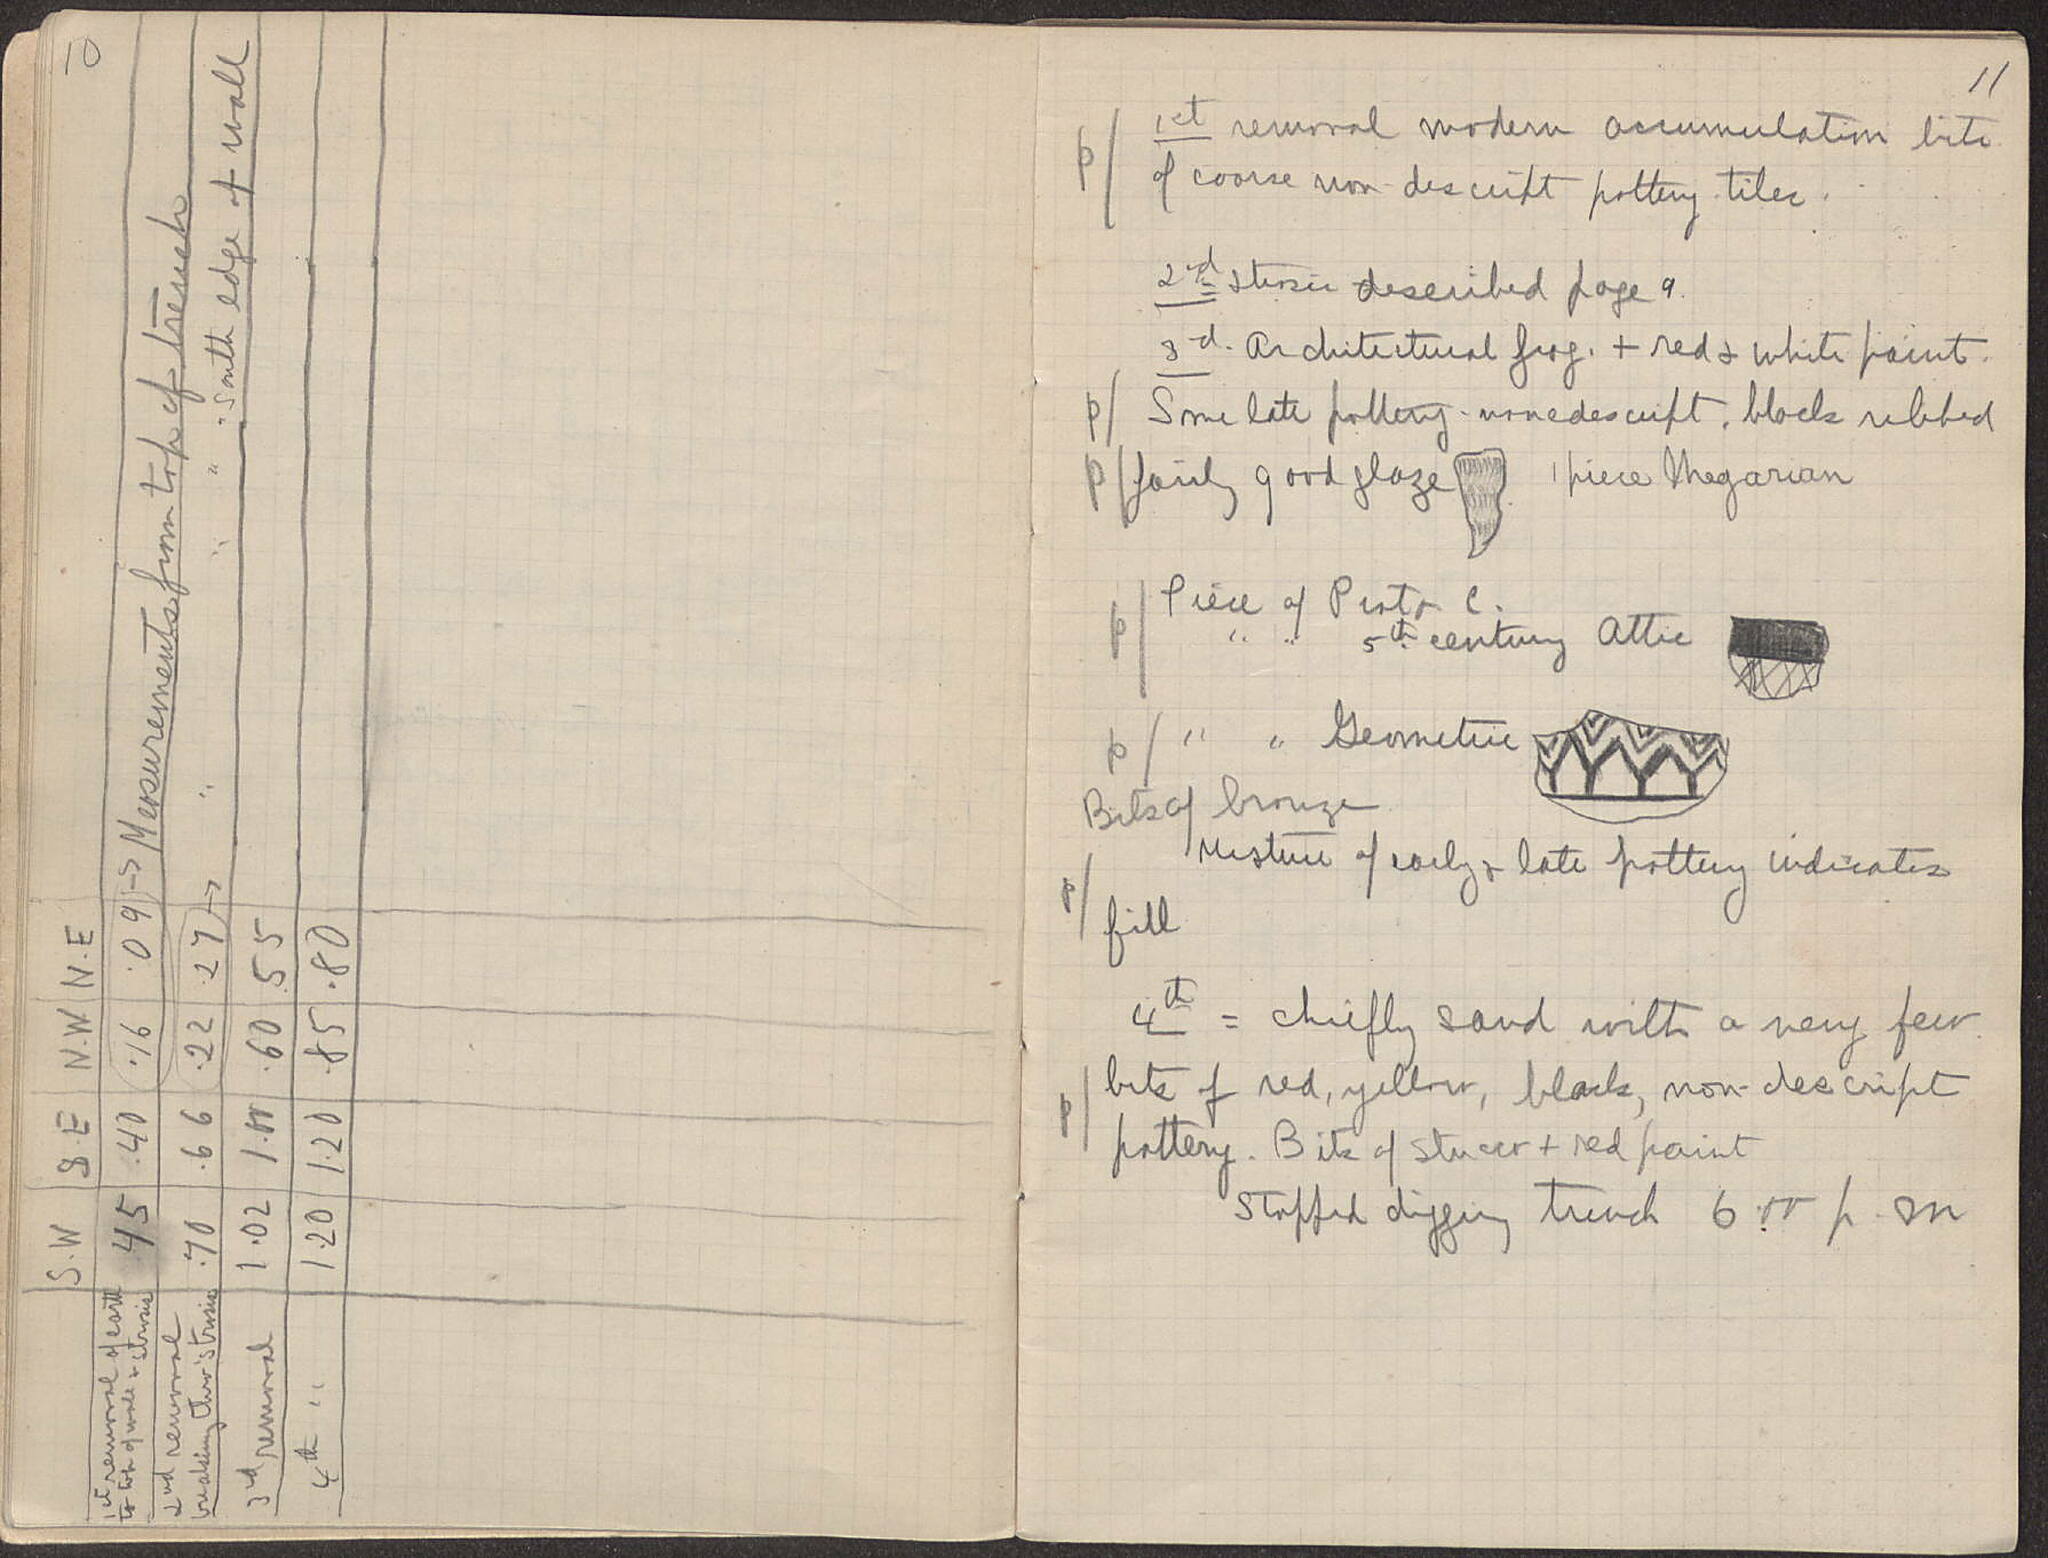 10
S.W S.E N.W N.E
1st removal of earth to top of wall & strosis .45 .40 .16 .09 → Measurements from top of trench
2nd removal breaking thro' strosis .70 .66 .22 .27 → " " " " South edge of wall
3rd removal 1.02 1.00 .60 .55
4th " 1.20 1.20 .85 .80
11
p/ 1st removal modern accumulation bits
of coarse non-descript pottery tiles.
2nd = strosis described page 9.
3d. Architectural frag. + red & white paint.
p/ Some late pottery - nonedescript, black ribbed
p/ fairly good glaze 1 piece Megarian
p/ Piece of Proto C.
" " 5th century Attic
p/ " " Geometric
Bits of bronze
Mixture of early & late pottery indicates
p/ fill
4th = chiefly sand with a very few
p/ bits of red, yellow, black, non-descript
pottery. Bits of stucco + red paint
Stopped digging trench 6:00 p.m